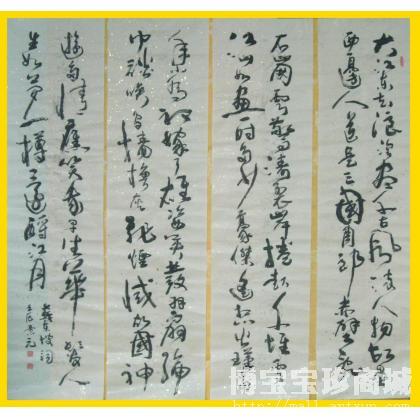 大江东去浪淘尽千古風流人物故壘
西邊人道是三國周郎赤壁亂
石崩雲驚濤裂岸捲起千堆雪
江山如畫一時多少豪傑遙想公瑾當
年小喬初嫁了雄姿英發羽扇綸
巾談笑間檣櫓灰飛煙滅故國神
遊多情應笑我早生華髮人
生如夢一樽還酹江月
蘇東坡詞
博宝宝珍商城